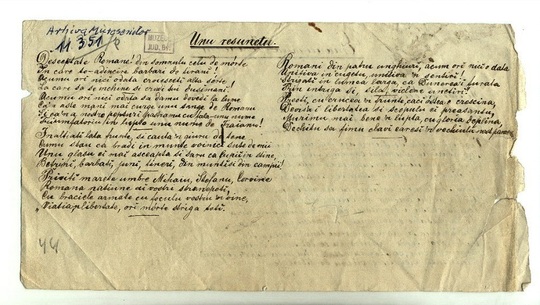 Arhiva Mureșenilor
11.351
Unu resunetu.
Desceptate Romane! din somnulu celu de morte
In care te-adâncira barbari de tirani!
Acumu ori nici odata croiescete alta sórte
La care sa se inchine si cruzii tei dusimani!
Acumu ori nici odata sa damu dovesi la lume
Ca'n aste mani mai curge unu sange de Romanu
Si ca'n a nostre pepturi pastramu cu fala unu nume
Triumfatoriu in lupte, unu nume de Traianu!
Inalti-ati lata frunte, si cauta'n giuru de tene
Cumu stau ca bradi in munte voinici sute de mii
Unu glasu ei mai ascepta si saru ca lupii in stane,
Betrani, barbati, juni, tineri, din munti si din campii!
Priviti marete umbre Mihaiu, Stefanu, Corvine
Romana natiune ai vostri stranepoti,
Cu braciele armate cu foculu vostru'n vine,
Viatia'n libertate, ori morte striga toti.
Romani din patru unghiuri, acum ori nici odata
Uniti-ve in cugetu, uniti-ve'n sentiri!
Strigati in lumea larga, ca Dunarea-i furata
Prin intriga si sila, viclene uneltiri!
Preoti, cu crucea'n frunte caci óstea e crestina,
Devisa-i libertatea si scopulu ei preasantu,
Murimu mai bine'n lupta, cu gloria deplina,
Decâtu sa fimu sclavi earasi in vechiulu nost' pamentu
44